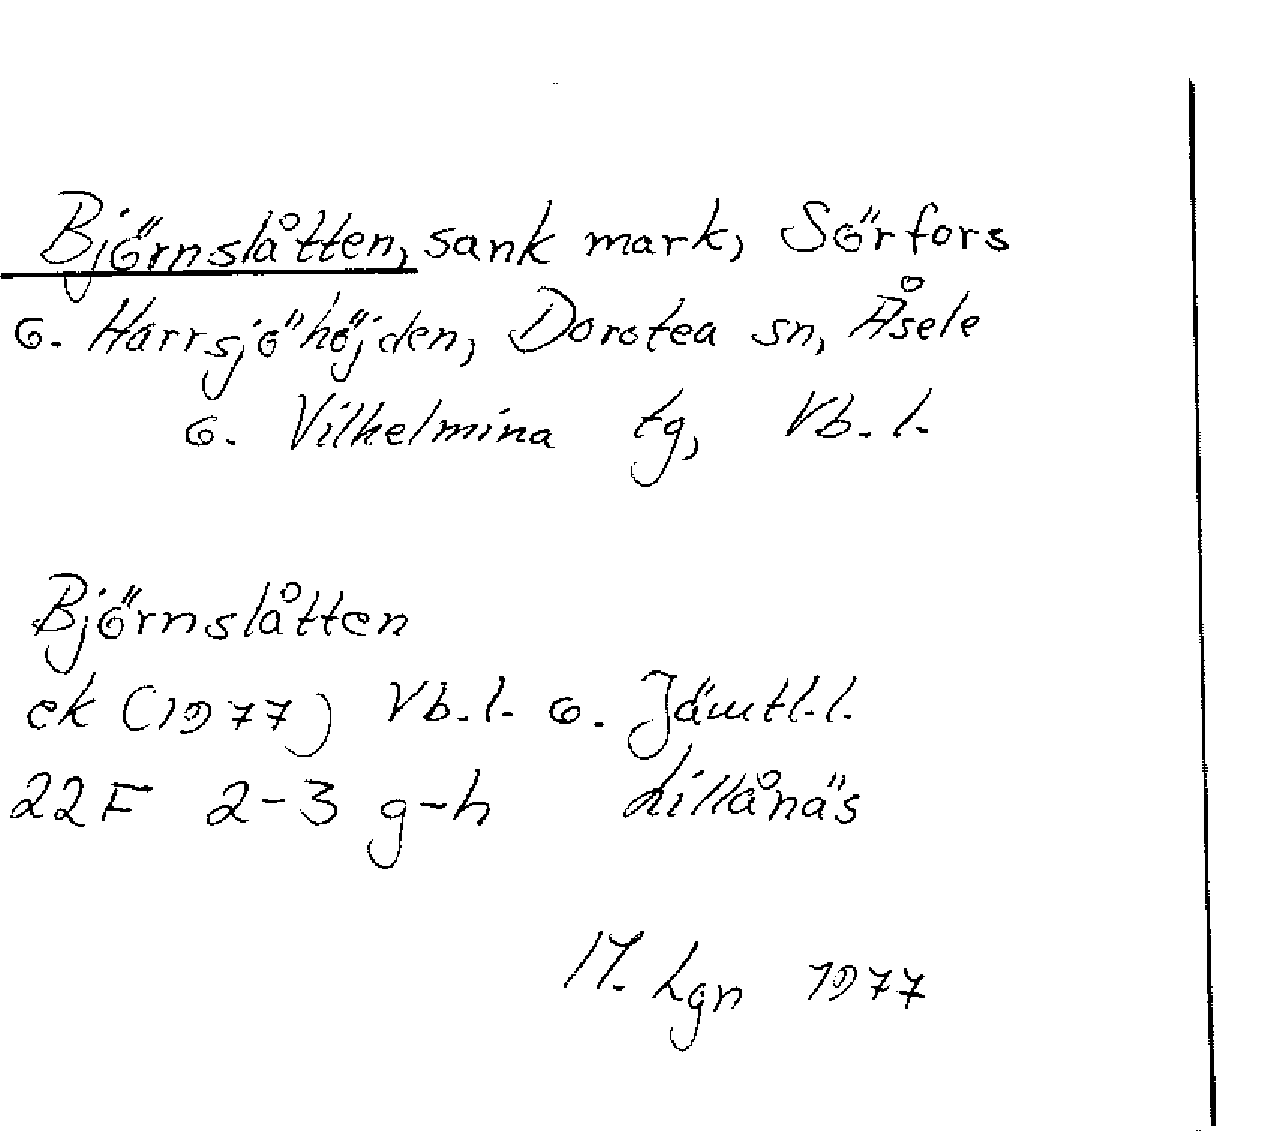 Björnslåtten, sank mark, Sörfors
o. Harrsjöhöjden, Dorotea sn, Åsele
o. Vilhelmina tg, Vb. l.
Björnslåtten
ek (1977) Vb. l. o. Jämtl. l.
22F 2-3 g-h Lillånäs
M. Lgn 1977